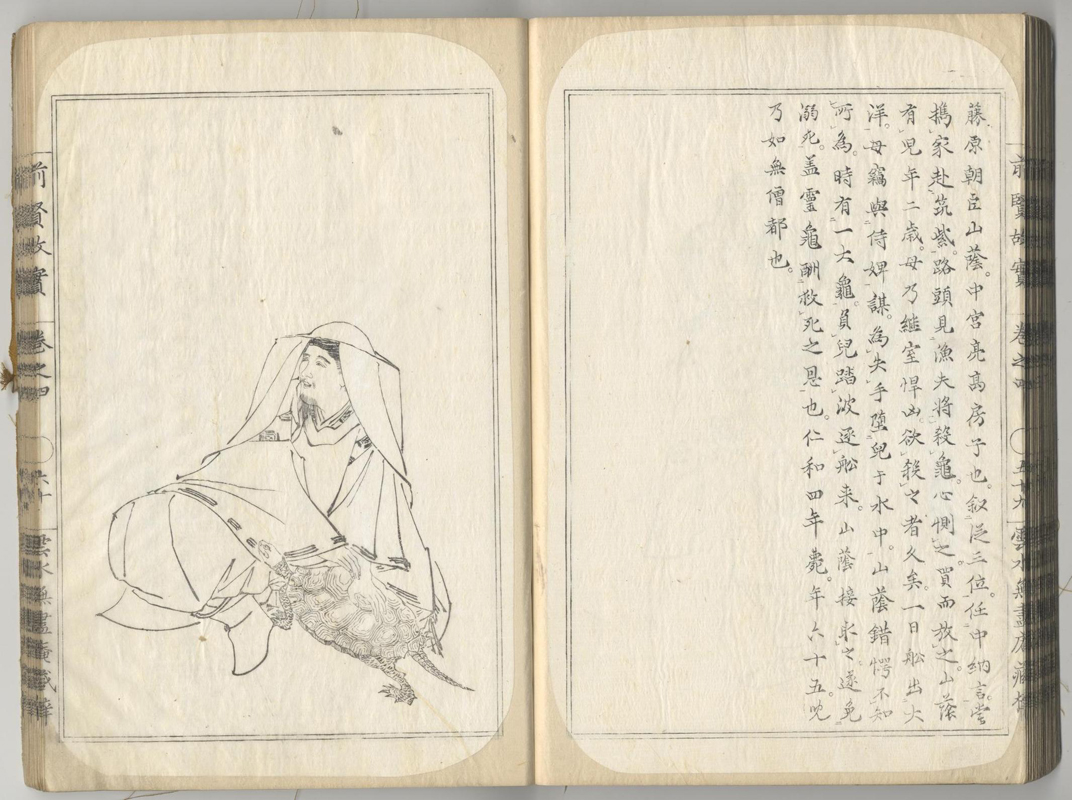 藤原朝臣山蔭。中宮亮高房子也。叙從三位。任中納言。嘗
携家赴筑紫。路頭見漁夫將殺龜。心惻之。買而放之。山蔭
有兒年二歳。母乃繼室悍凶。欲殺之者久矣。一日舩出大
洋。母竊與侍婢謀。為失手墮兒于水中。山蔭錯愕不知
所為。時有一大龜。負兒踏波逐舩来。山蔭接取之。遂免
溺死。盖靈龜酬救死之恩也。仁和四年薨。年六十五。児
乃如無僧都也。
前賢故實 卷之四 五十九 雲水無盡庵藏
前賢故實 卷之四 六十 雲水無盡